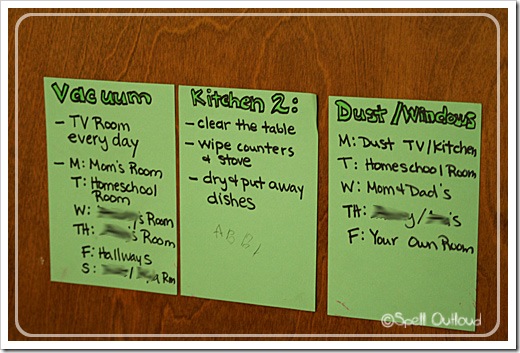 Vacuum
- TV Room
every day
- M: Mom's Room
T: Homeschool
Room
W: 's Room
TH: 's Room
F: Hallways
S: / Rm
Kitchen 2:
- clear the table
- wipe counters
& stove
- dry & put away
dishes
Dust/Windows
M: Dust TV/Kitchen
T: Homeschool Room
W: Mom & Dad's
TH: y/ 's
F: Your Own Room
©Spell Outloud